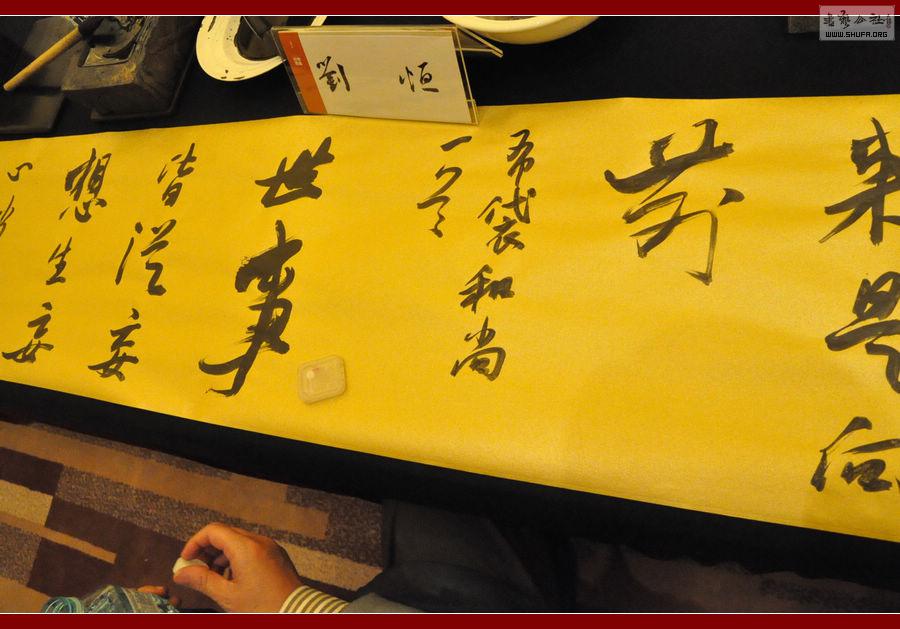 書藝公社
WWW.SHUFA.ORG
劉恒
来是向
前
布袋和尚
世事
皆從妄
想生妄
心